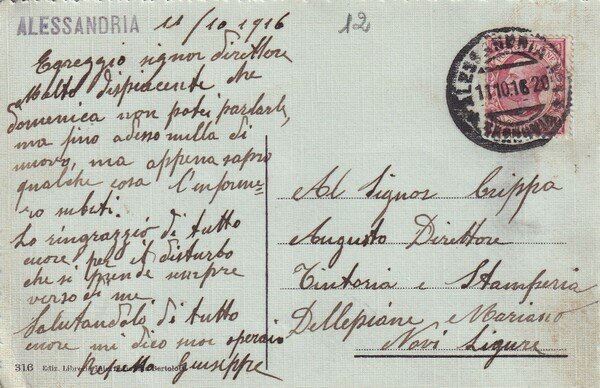 ALESSANDRIA
11/10 1916
12
Egreggio signor direttore
Molto dispiacente che
domenica non potei parlarle,
ma fino adesso nulla di
nuovo, ma appena sapro
qualche cosa l'informe-
ro subiti.
Lo ringrazziò di tutto
cuore per il disturbo
che si prende sempre
verso di me.
Salutandolo di tutto
cuore mi dico suo operaio
Giuseppe
ALESSANDRIA
11.10.16 20
Al Signor Crippa
Augusto Direttore
Tintoria e Stamperia
Dellepiane e Mariano
Novi Ligure
316 Ediz. Bertolotti